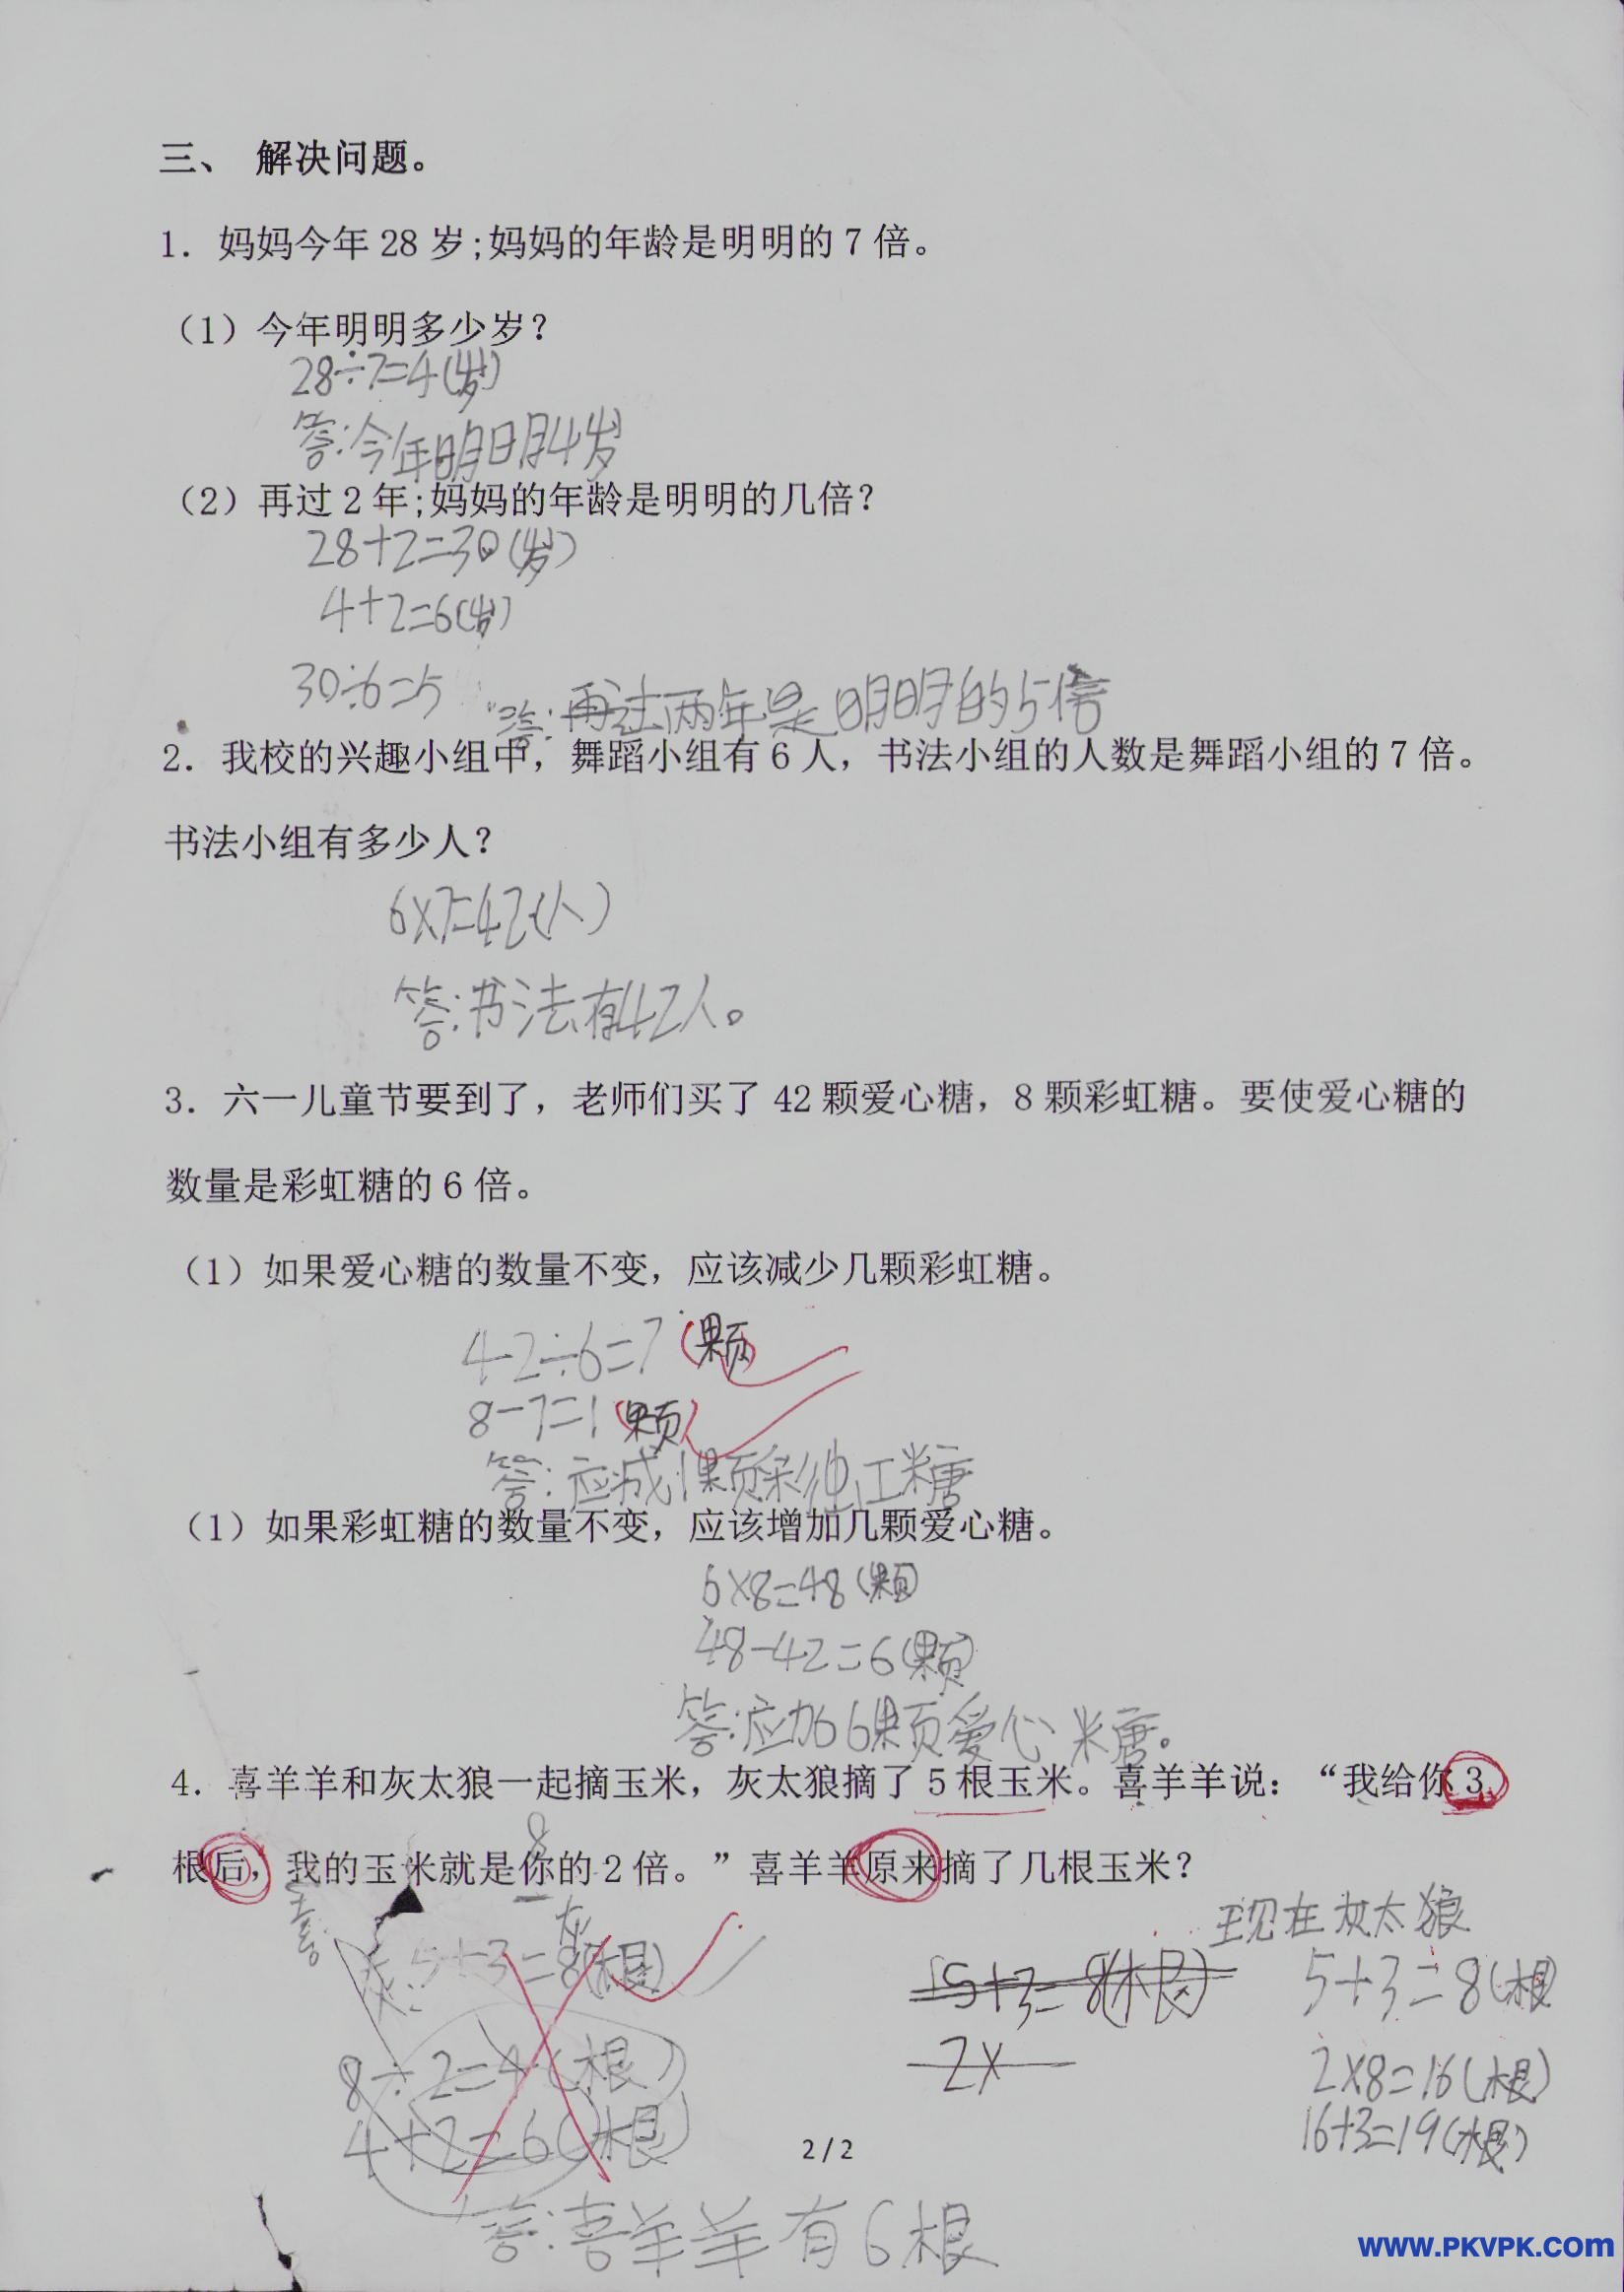 三、 解决问题。
1. 妈妈今年 28 岁;妈妈的年龄是明明的 7 倍。
（1）今年明明多少岁？
28÷7=4(岁)
答:今年明明4岁
（2）再过 2 年;妈妈的年龄是明明的几倍？
28+2=30(岁)
4+2=6(岁)
30÷6=5 答:再过两年是明明的5倍
2. 我校的兴趣小组中，舞蹈小组有 6 人，书法小组的人数是舞蹈小组的 7 倍。
书法小组有多少人？
6×7=42(人)
答:书法有42人。
3. 六一儿童节要到了，老师们买了 42 颗爱心糖，8 颗彩虹糖。要使爱心糖的
数量是彩虹糖的 6 倍。
（1）如果爱心糖的数量不变，应该减少几颗彩虹糖。
42÷6=7(颗)
8-7=1(颗)
答:应减1颗彩红糖
（1）如果彩虹糖的数量不变，应该增加几颗爱心糖。
6×8=48(颗)
48-42=6(颗)
答:应加6颗爱心糖。
4. 喜羊羊和灰太狼一起摘玉米，灰太狼摘了 5 根玉米。喜羊羊说：“我给你 3
根后，我的玉米就是你的 2 倍。”喜羊羊原来摘了几根玉米？
8
喜 灰
现在灰太狼
灰: 5+3=8(根) 5+3=8(根) 5+3=8(根)
8÷2=4(根) 2× 2×8=16(根)
4+2=6(根) 16+3=19(根)
2 / 2
答:喜羊羊有6根
www.PKVPK.com